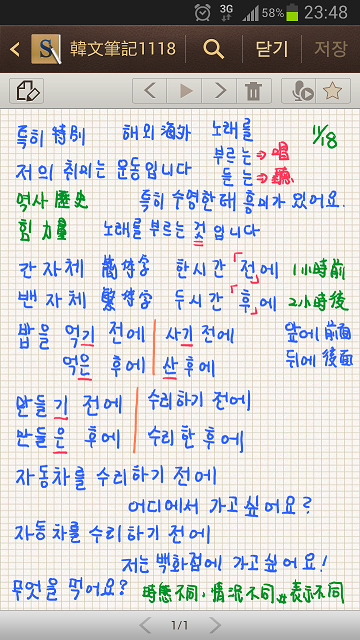 3G 58% 23:48
韓文筆記1118 닫기 저장
특히 特別 해외 海外 노래를 11/18
부르는 ⇒ 唱
저의 취미는 운동입니다 듣는 ⇒ 聽
역사 歷史 특히 수영한테 흥미가 있어요.
힘 力量 노래를 부르는 것입니다
간자체 簡体字 한시간「전」에 1小時前
번자체 繁体字 두시간「후」에 2小時後
밥을 먹기 전에 사기 전에 앞에 前面
먹은 후에 산 후에 뒤에 後面
만들기 전에 수리하기 전에
만들은 후에 수리한 후에
자동차를 수리하기 전에
어디에서 가고 싶어요?
자동차를 수리하기 전에
저는 백화점에 가고 싶어요!
무엇을 먹어요? 時態不同,情況不同,表示不同
1/1